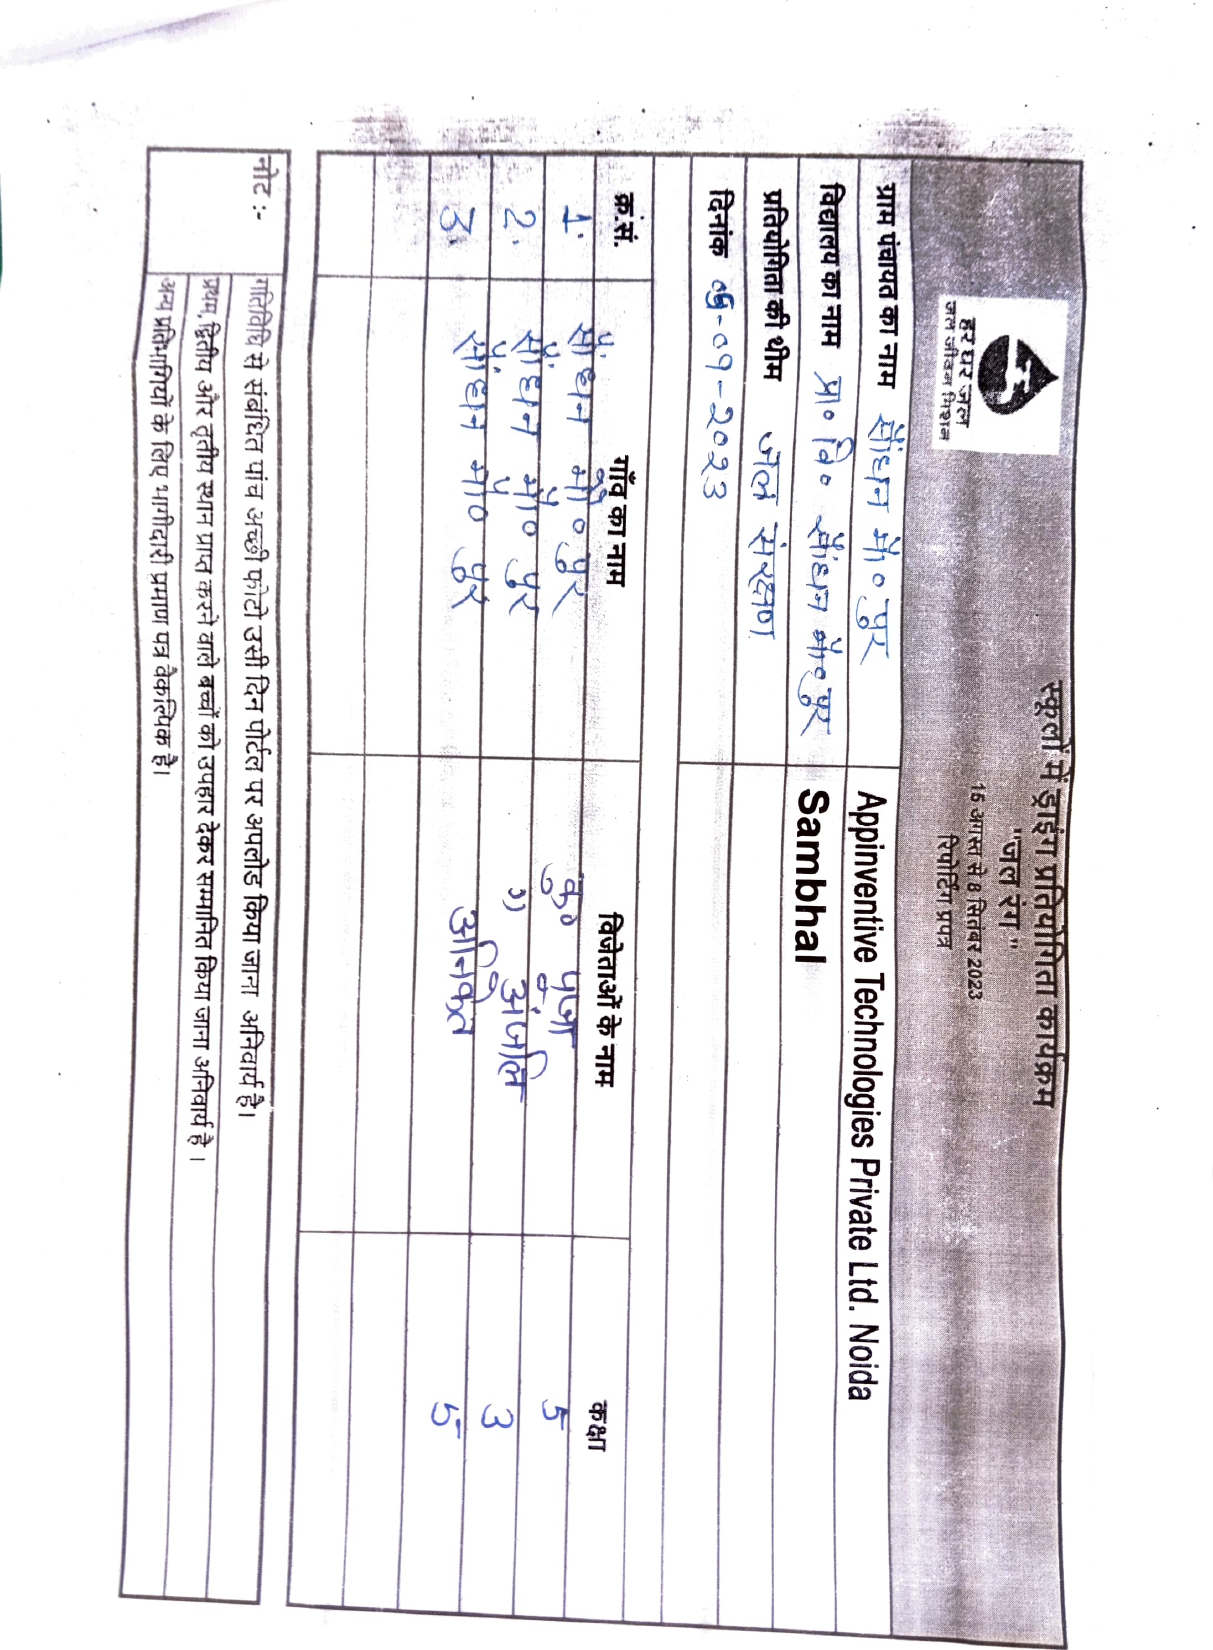 हर घर जल
जल जीवन मिशन
स्कूलों में ड्राइंग प्रतियोगिता कार्यक्रम
"जल रंग"
15 अगस्त से 8 सितंबर 2023
रिपोर्टिंग प्रपत्र
ग्राम पंचायत का नाम सौंधन मो० पुर Appinventive Technologies Private Ltd. Noida
विद्यालय का नाम प्रा० वि० सौंधन मो० पुर Sambhal
प्रतियोगिता की थीम जल संरक्षण
दिनांक -09-2023
क्र.सं. गाँव का नाम विजेताओं के नाम कक्षा
1. सौंधन मो० पुर कु० पूजा 5
2. सौंधन मो० पुर " अंजलि 3
3. सौंधन मो० पुर अनिकेत 5
नोट :- गतिविधि से संबंधित पांच अच्छी फोटो उसी दिन पोर्टल पर अपलोड किया जाना अनिवार्य है।
प्रथम, द्वितीय और तृतीय स्थान प्राप्त करने वाले बच्चों को उपहार देकर सम्मानित किया जाना अनिवार्य है।
अन्य प्रतिभागियों के लिए भागीदारी प्रमाण पत्र वैकल्पिक है।